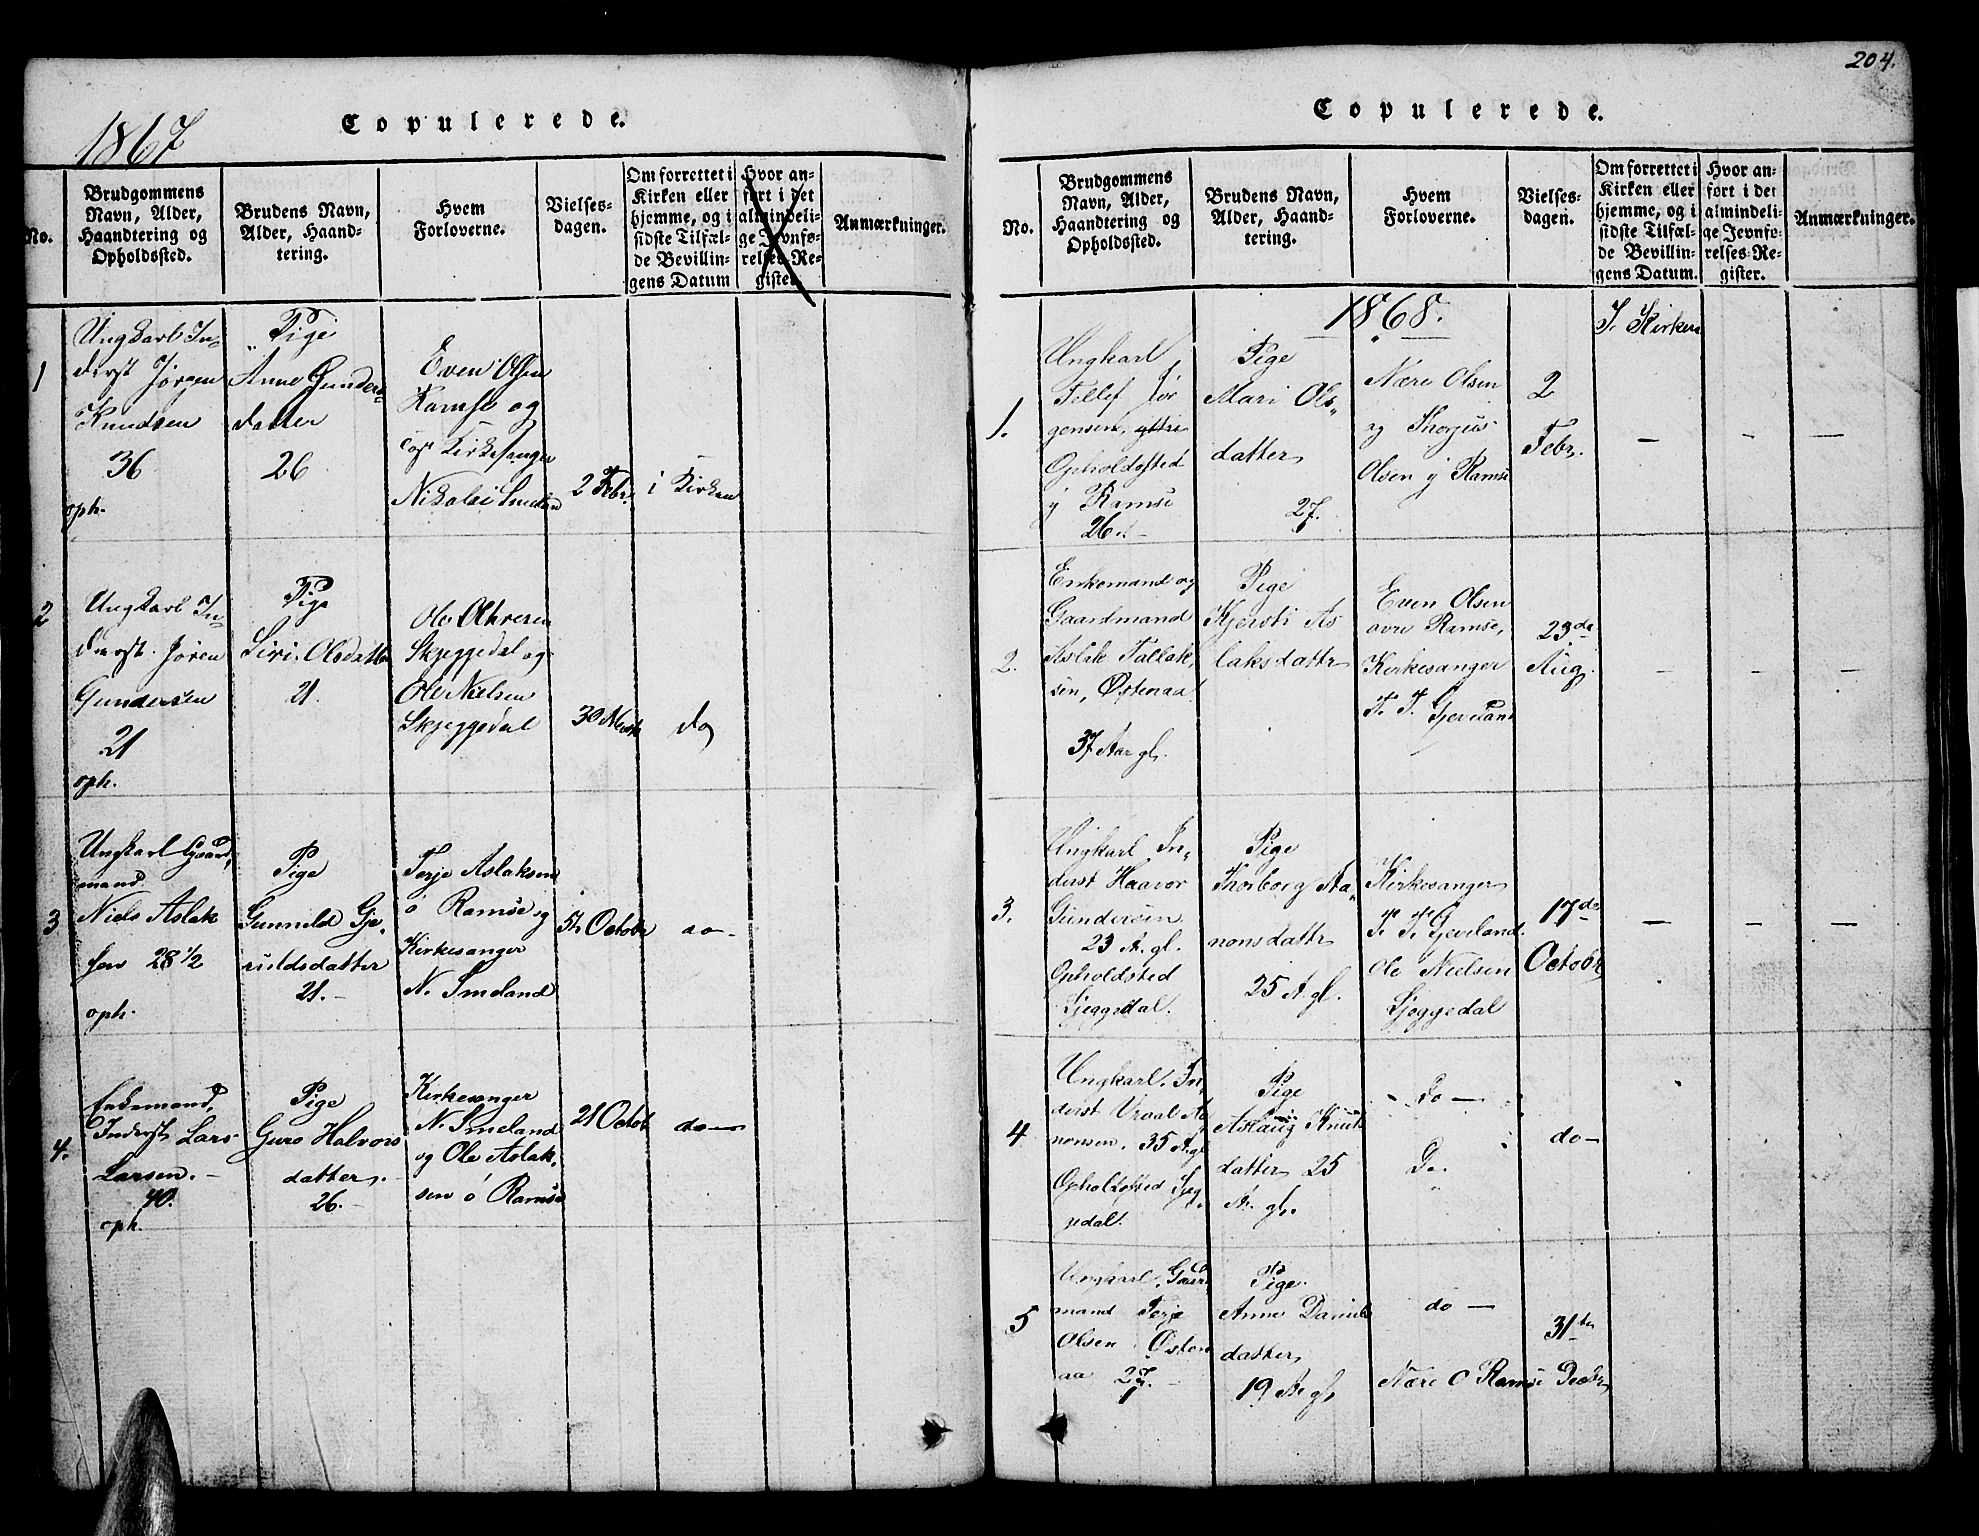 1867
Copulerede.
No.
Brudgommens
Navn, Alder,
Haandtering og
Opholdssted.
Brudens Navn,
Alder, Haand-
tering.
Hvem
Forloverne.
Vielses-
dagen.
Om forrettet i
Kirken eller
hjemme, og i
sidste Tilfæl-
de Bevillin-
gens Datum
Hvor an-
ført i det
almindeli-
ge Jevnfø-
relses-Re-
gister.
Anmærkninger.
1
Ungkarl In-
derst Jørgen
Knudsen
36
oph.
Pige
Anne Gunders-
datter
26
Even Olsen
Ramse og
Kirkesanger
Nikolai Smeland
2 Febr.
i Kirken
2
Ungkarl In-
derst Jören
Gundersen
21
oph.
Pige
Siri Olsdatter
21
Ole
Skjeggedal og
Ole Nielsen
Skjeggedal
30
do
3
Ungkarl Gaard,
mand
Niels Aslak
sen 28 1/2
oph.
Pige
Gunnild Gje,
ruldsdatter
21.-
Terje Aslaksen
ó Ramse og
Kirkesanger
N. Smeland
5te October
do-
4.
Enkemand,
Inderst Lars
Larsen.-
40.
oph.
Pige
Guro Halvors
datter.
26.-
Kirkesanger
N. Smeland
og Ole Aslak,
sen ó Ramse
21 Octob
do-
204.
Copulerede.
No.
Brudgommens
Navn, Alder,
Haandtering og
Opholdssted.
Brudens Navn,
Alder, Haand-
tering.
Hvem
Forloverne.
Vielses-
dagen.
Om forrettet i
Kirken eller
hjemme, og i
sidste Tilfæl-
de Bevillin-
gens Datum.
Hvor an-
ført i det
almindeli-
ge Jevnfø-
relses-Re-
gister.
Anmærkninger.
1868.
I Kirken
1.
Ungkarl
Tellef Jör
gensen,
Opholdssted
y Ramse
26.-
Pige
Mari Ols-
datter
27.
Nære Olsen
og Thorjus
Olsen y Ramse
2
Febr.
— — —
2.
Enkemand og
Gaardmand
Aslak Tallak,
sen, Østenaa
37 Aar gl.
Pige
Kjersti As
laksdattr
Even Olsen
øvre Ramse,
Kirkesanger
T. T. Gjeveland
23de
Aug
— — —
3.
Ungkarl In,
derst Haavor
Gundersen
23 A. gl.
Opholdsted
Sjeggedal.
Pige
Thorborg Aa,
nonsdattr
25 A. gl.
Kirkesanger
T. T. Gjeveland.
Ole Nielsen
Sjeggedal
17de
October
— — —
4
Ungkarl. In,
derst Vraal Aa
nonsen. 35 A. gl
Opholdssted Sjeg
gedal.
Pige
Aslaug Knuts
datter 25
A. gl.
Do —
Do.
do—
5
Ungkarl. Gaard
mand Terje
Olsen Østen
aa 27.-
Pige.
Anne Daniels
datter,
19 A. gl.
do —
Nære O Ramse
31te
Decbr